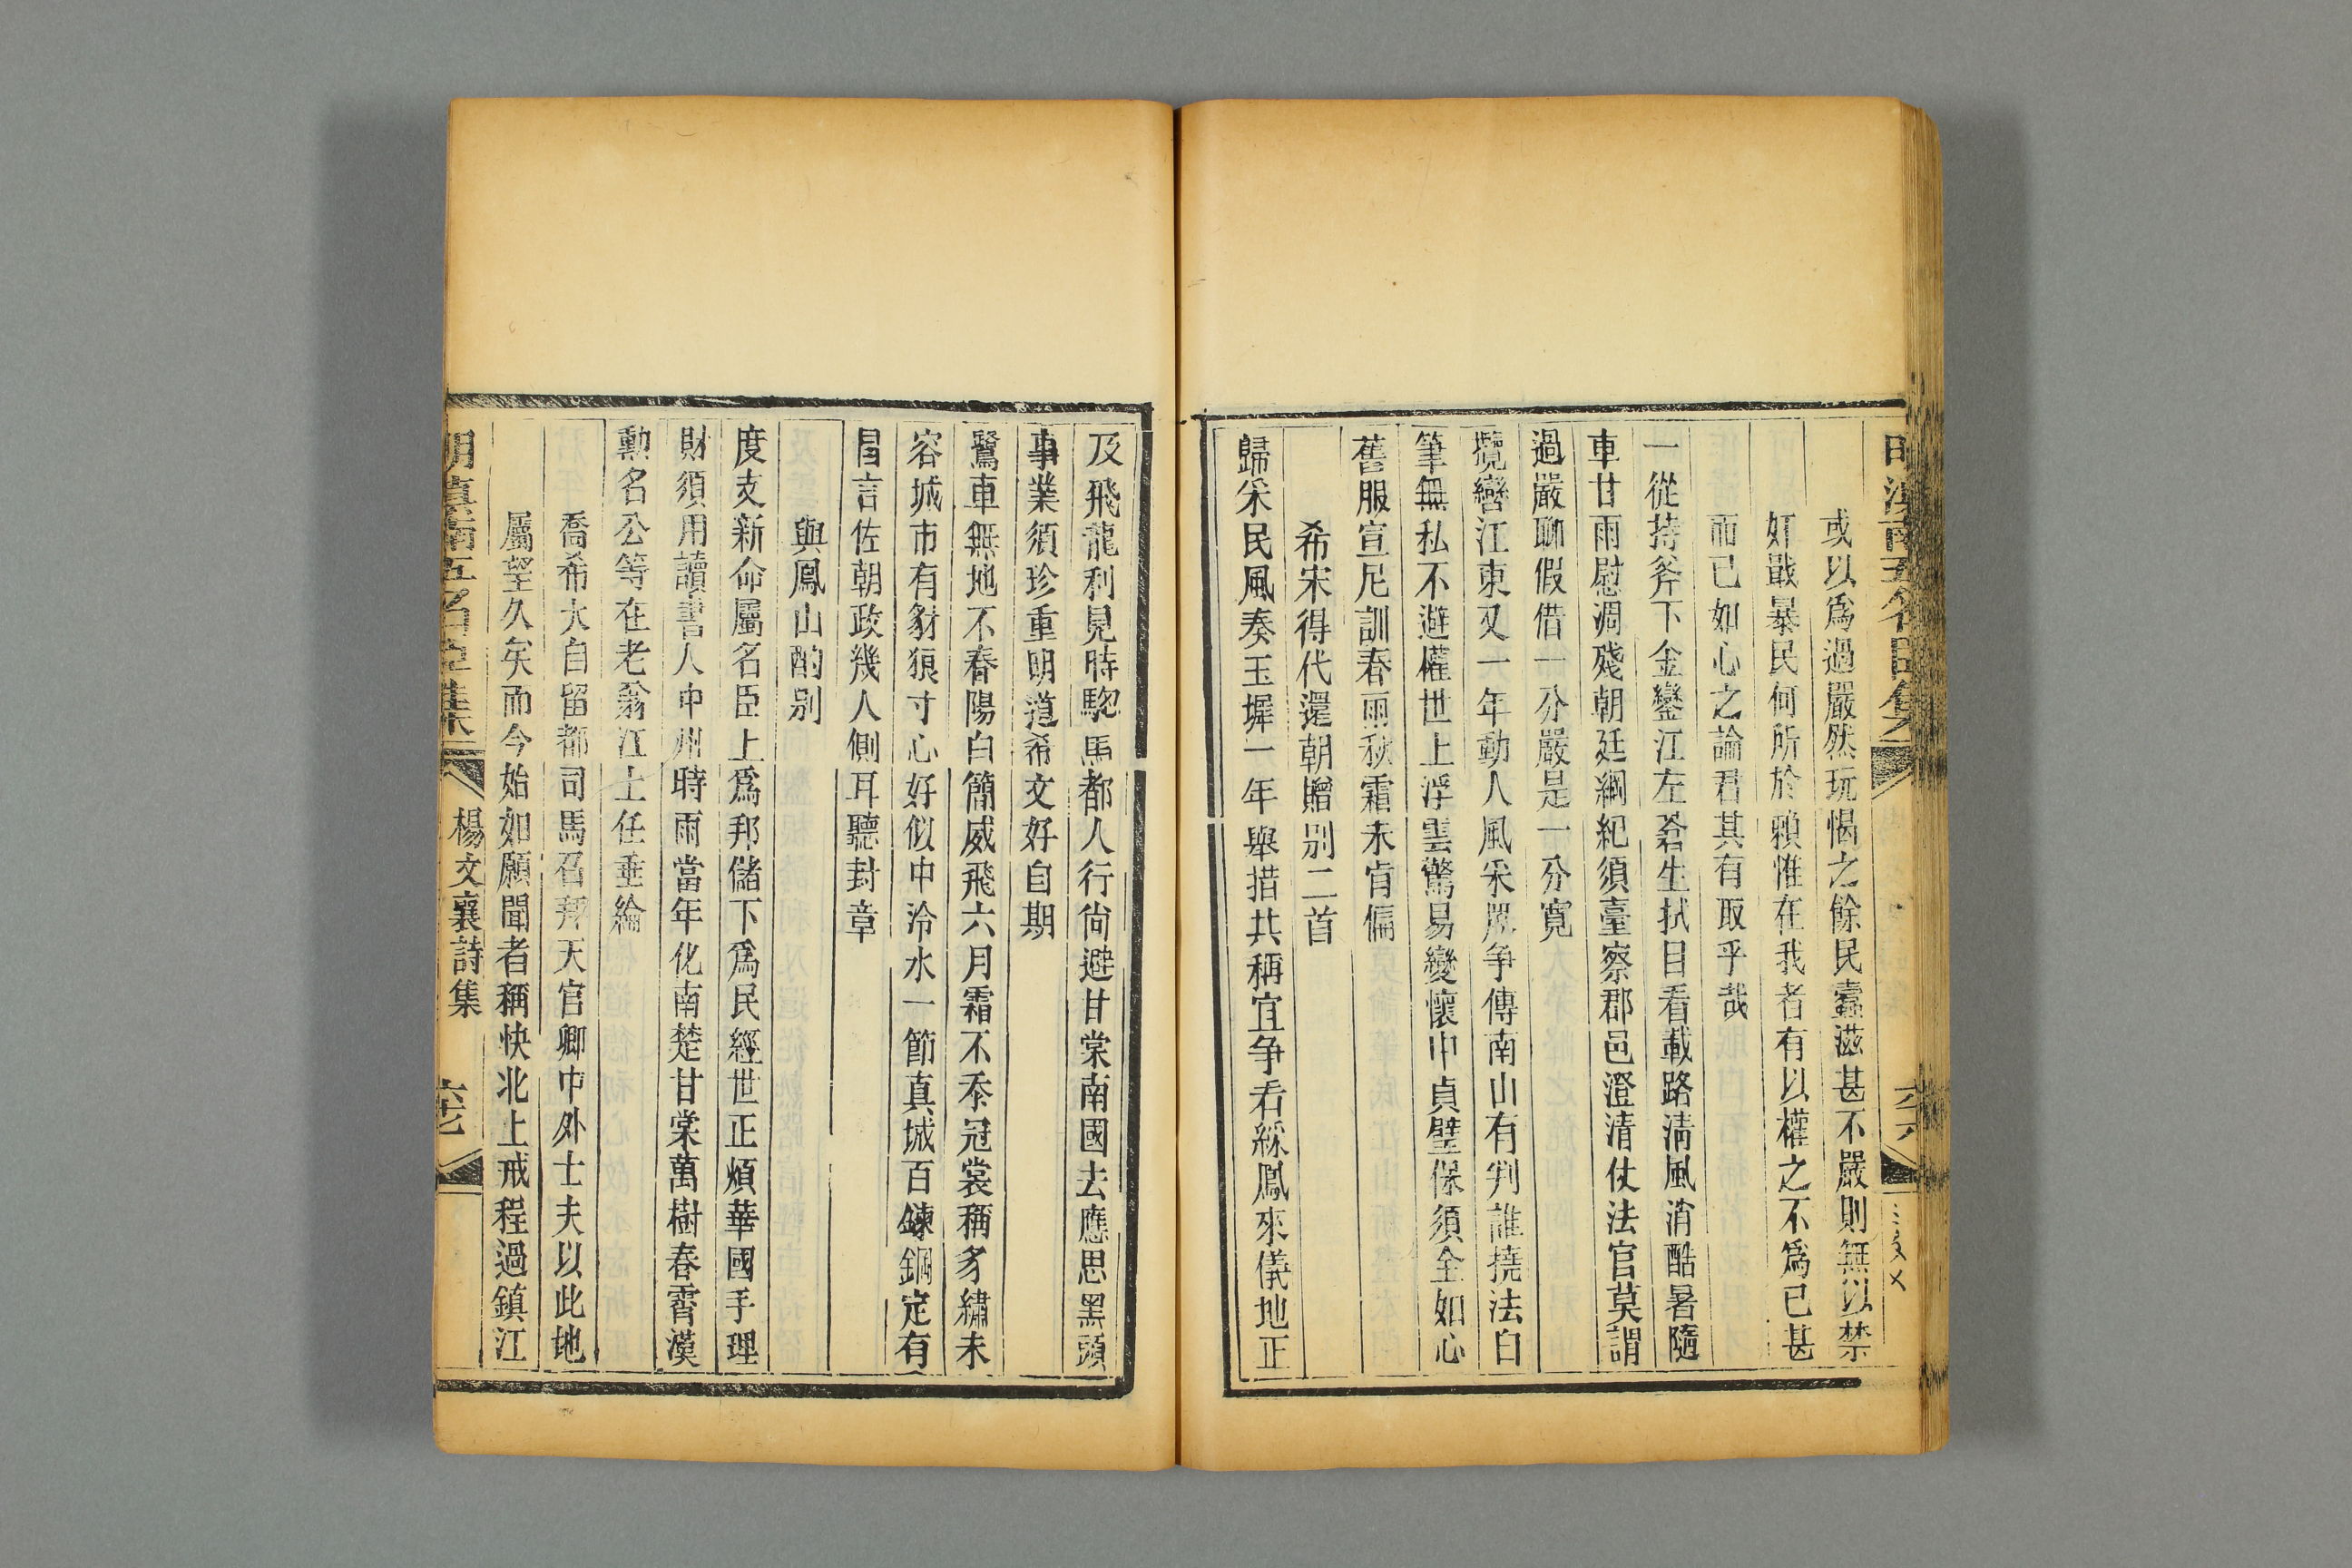 或以爲過嚴然玩愒之餘民蠹滋甚不嚴則無以禁
奸戢暴民何所於賴惟在我者有以權之不爲已甚
而已如心之論君其有取乎哉
一從持斧下金鑾江左蒼生拭目看載路淸風消酷暑隨
車甘雨慰凋殘朝廷綱紀須臺察郡邑澄清仗法官莫謂
過嚴聊假借一分嚴是一分寬
攬轡江東又一年動人風采眾爭傳南山有判誰撓法白
筆無私不避權世上浮雲驚易變懷中貞璧保須全如心
舊服宣尼訓春雨秋霜未肯偏
希宋得代還朝贈別二首
歸采民風奏玉墀一年舉措共稱宜争看綵鳳來儀地正
及飛龍利見時驄馬都人行尙避甘棠南國去應思黑頭
事業須珍重明道希文好自期
鷺車無地不春陽白簡威飛六月霜不忝冠裳稱豸繡未
容城市有豺狼寸心好似中泠水一節真城百鍊鋼定有
昌言佐朝政幾人側耳聽封章
與鳳山酌別
度支新命屬名臣上爲邦儲下爲民經世正煩華國手理
財須用讀書人中州時雨當年化南楚甘棠萬樹春霄漢
勳名公等在老翁江上任垂綸
喬希大自留都司馬召拜天官卿中外士夫以此地
屬望久矣而今始如願聞者稱快北上戒程過鎮江
明滇南五名臣集
楊文襄詩集
六七
明滇南五名臣集
六六